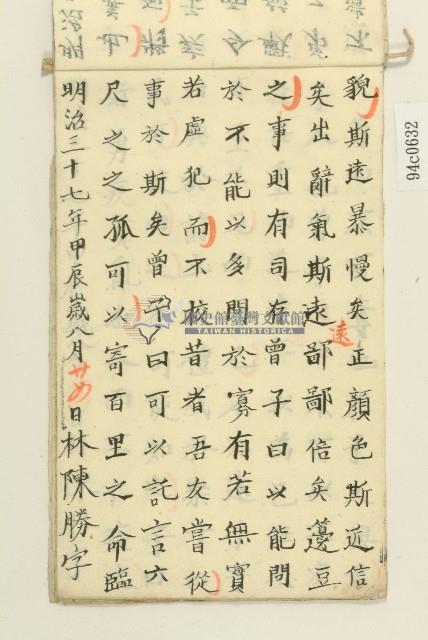 貌斯遠暴慢矣正顏色斯近信
矣出辭氣斯遠鄙鄙倍矣籩豆
遠
之事則有司存曾子曰以能問
於不能以多問於寡有若無實
若虛犯而不校昔者吾友嘗從
事於斯矣曾子人曰可以託言六
尺之之孤可以寄百里之命臨
明治三十七年甲辰歲八月
日林陳勝字
臺灣史料文獻館
TAIWAN HISTORICA
94c0632